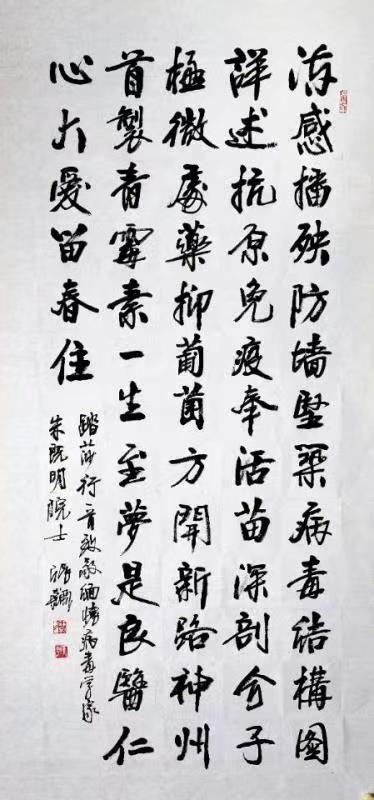 流感播殃防墙坚築病毒结構图
詳述抗原免疫奉活苗深剖分子
極微處藥抑葡菌方開新路神州
首製青霉素一生至夢是良醫仁
心大愛留春住
踏莎行一首致敬缅懷病毒学家
朱既明院士